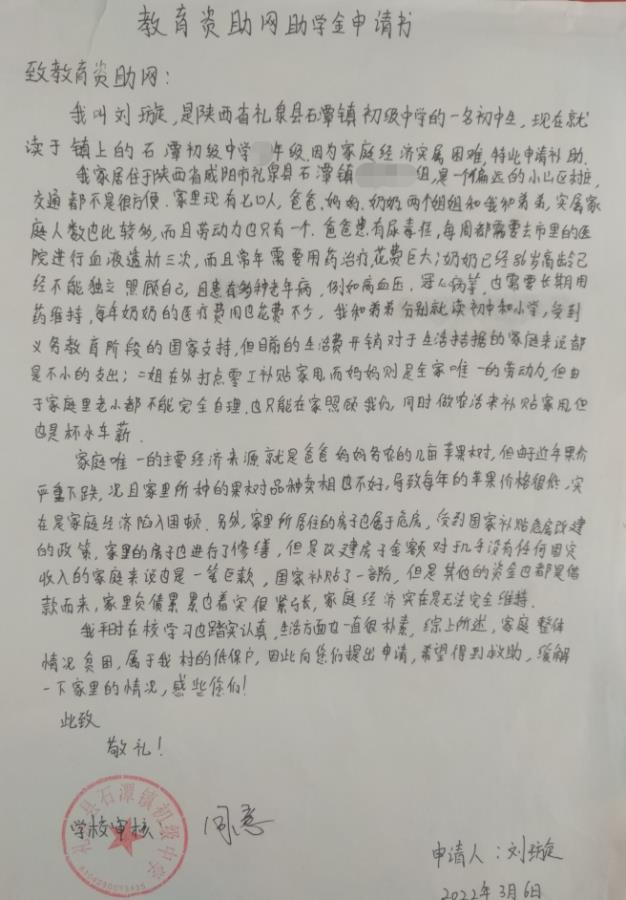 教育资助网助学金申请书
致教育资助网：
我叫刘璇，是陕西省礼泉县石潭镇初级中学的一名初中生，现在就
读于镇上的石潭初级中学 年级，因为家庭经济实属困难，特此申请补助.
我家居住于陕西省咸阳市礼泉县石潭镇 组，是一个偏远的小山区村庄，
交通都不是很方便.家里现有七口人，爸爸，妈妈，奶奶两个姐姐和我和弟弟，实属家
庭人数也比较多，而且劳动力也只有一个.爸爸患有尿毒症，每周都需要去市里的医
院进行血液透析三次，而且常年需要用药治疗，花费巨大；奶奶已经86岁高龄已
经不能独立照顾自己，且患有多种老年病，例如高血压.冠心病等，也需要长期用
药维持，每年奶奶的医疗费用也花费不少，我和弟弟分别就读初中和小学，受到
义务教育阶段的国家支持，但目前的生活费开销对于生活拮据的家庭来说都
是不小的支出；二姐在外打点零工补贴家用，而妈妈则是全家唯一的劳动力，但由
于家庭里老小都不能完全自理，也只能在家照顾我们，同时做农活来补贴家用，但
也是杯水车薪.
家庭唯一的主要经济来源就是爸爸妈妈务农的几亩苹果树，但由于近年果价
严重下跌，况且家里所种的果树品种卖相也不好，导致每年的苹果价格很低，实
在是家庭经济陷入困顿.另外，家里所居住的房子也属于危房，受到国家补贴危房改建
的政策，家里的房子也进行了修缮，但是改建房子金额对于几乎没有任何固定
收入的家庭来说也是一笔巨款，国家补贴了一部份，但是其他的资金也都是借
款而来，家里负债累累也着实很紧张，家庭经济实在是无法完全维持.
我平时在校学习也踏实认真，生活方面也一直很朴素，综上所述，家庭整体
情况贫困，属于我村的低保户，因此向您们提出申请，希望得到救助，缓解
一下家里的情况，感些您们！
此致
敬礼！
学校审核：同意
礼泉县石潭镇初级中学
申请人：刘璇
2022年3月6日